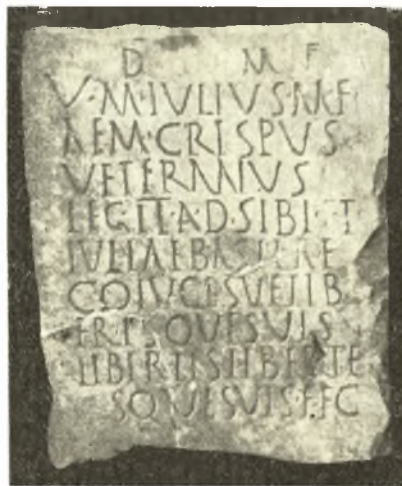 D M F
V·M·IVLIVS·M·F·
AEM·CRISPVS
VETERANVS
LEG·II·AD·SIBI·ET
IVLIAE
COIVGI SVE LIB
ERISQVE SVIS
LIBERTIS LIBERTE
SQVE SVIS·F·FC